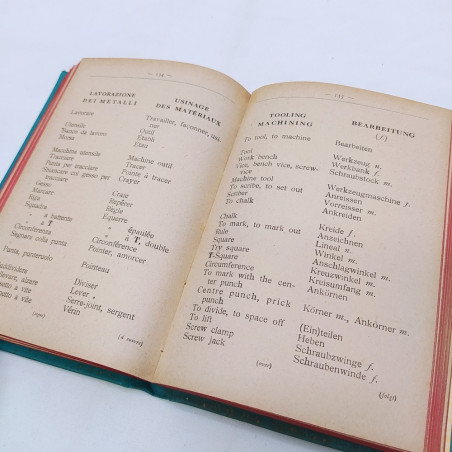 LAVORAZIONE
DEI METALLI
USINAGE
DES MATÉRIAUX
Lavorare
Travailler, façonner, usi-
ner
Utensile
Outil
Banco da lavoro
Établi
Morsa
Étau
Macchina utensile
Machine outil
Tracciare
Tracer
Punta per tracciare
Pointe à tracer
Crayer
Gesso
Craie
Marcare
Repérer
Riga
Règle
Squadra
Équerre
» a battente
» épaulée
» a T
» à T, double
Circonferenza
Circonférence
Segnare colla punta
Pointer, amorcer
Punta, punteruolo
Pointeau
Suddividere
Diviser
Lever
Serre-joint, sergent
Vérin
(4 suivre)
— 135 —
TOOLING
MACHINING
BEARBEITUNG
(f.)
To tool, to machine
Bearbeiten
Tool
Werkzeug n.
Work bench
Werkbank f.
Vice, bench vice, screw-
vice
Schraubstock m.
Machine tool
Werkzeugmaschine f.
To scribe, to set out
Anreissen
Scriber
Vorreisser m.
To chalk
Ankreiden
Chalk
Kreide f.
To mark, to mark out
Anzeichnen
Rule
Lineal n.
Square
Winkel m.
Try square
Anschlagwinkel m.
T-Square
Kreuzwinkel m.
Circumference
Kreisumfang m.
To mark with the cen-
ter punch
Ankörnen
Centre punch, prick
punch
Körner m., Ankörner m.
To divide, to space off
(Ein)teilen
To lift
Heben
Screw clamp
Schraubzwinge f.
Screw jack
Schraubenwinde f.
(over)
(folgt)